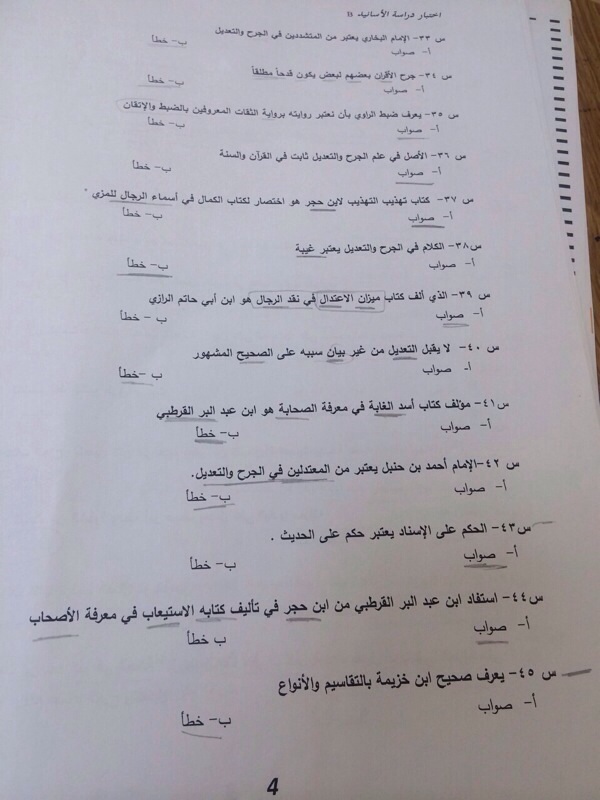 اختبار دراسة الأسانيد B
س ٣٣- الإمام البخاري يعتبر من المتشددين في الجرح والتعديل
أ- صواب ب- خطأ
س ٣٤- جرح الأقران بعضهم لبعض يكون قدحاً مطلقاً
أ- صواب ب- خطأ
س ٣٥- يعرف ضبط الراوي بأن نعتبر روايته برواية الثقات المعروفين بالضبط والإتقان
أ- صواب ب- خطأ
س ٣٦- الأصل في علم الجرح والتعديل ثابت في القرآن والسنة
أ- صواب ب- خطأ
س ٣٧- كتاب تهذيب التهذيب لابن حجر هو اختصار لكتاب الكمال في أسماء الرجال للمزي
أ- صواب ب- خطأ
س٣٨- الكلام في الجرح والتعديل يعتبر غيبة
أ- صواب ب- خطأ
س ٣٩- الذي ألف كتاب ميزان الاعتدال في نقد الرجال هو ابن أبي حاتم الرازي
أ- صواب ب- خطأ
س ٤٠- لا يقبل التعديل من غير بيان سببه على الصحيح المشهور
أ- صواب ب- خطأ
س٤١- مؤلف كتاب أسد الغابة في معرفة الصحابة هو ابن عبد البر القرطبي
أ- صواب ب- خطأ
س ٤٢-الإمام أحمد بن حنبل يعتبر من المعتدلين في الجرح والتعديل.
أ- صواب ب- خطأ
س٤٣- الحكم على الإسناد يعتبر حكم على الحديث .
أ- صواب ب- خطأ
س٤٤- استفاد ابن عبد البر القرطبي من ابن حجر في تأليف كتابه الاستيعاب في معرفة الأصحاب
أ- صواب ب خطأ
س ٤٥- يعرف صحيح ابن خزيمة بالتقاسيم والأنواع
أ- صواب ب- خطأ
4